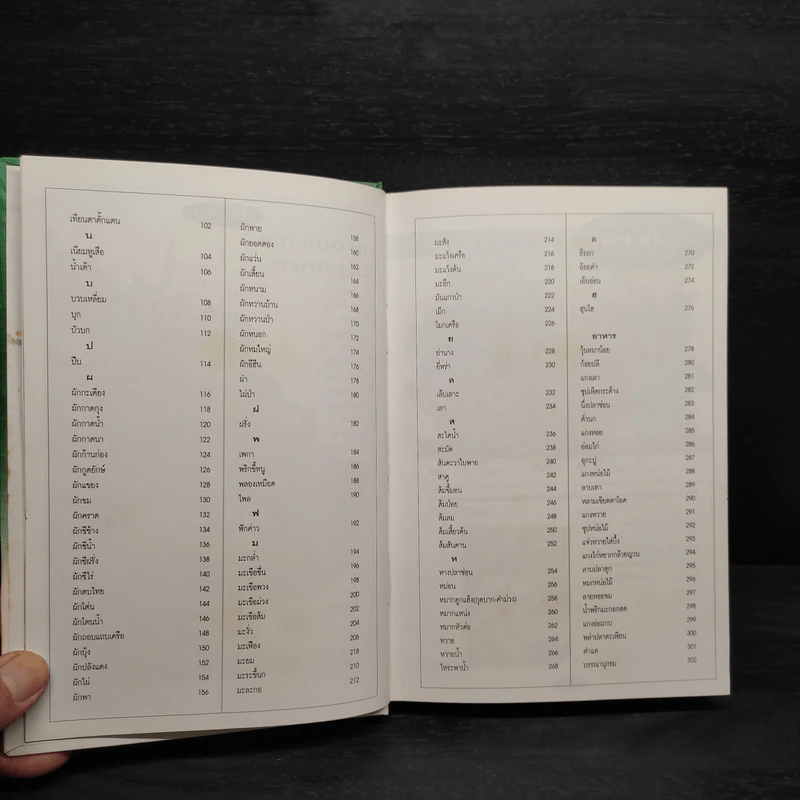 เทียนตาตั๊กแตน 102
น
เนียมหูเสือ 104
น้ำเต้า 106
บ
บวบเหลี่ยม 108
บุก 110
บัวบก 112
ป
ปีบ 114
ผ
ผักกะเดียง 116
ผักกาดกุง 118
ผักกาดน้ำ 120
ผักกาดนา 122
ผักก้านก่อง 124
ผักกูดยักษ์ 126
ผักแขยง 128
ผักขม 130
ผักคราด 132
ผักชีช้าง 134
ผักชีน้ำ 136
ผักชีฝรั่ง 138
ผักชีไร่ 140
ผักตบไทย 142
ผักโต่น 144
ผักโตนน้ำ 146
ผักถอบแถบเครือ 148
ผักบุ้ง 150
ผักปลังแดง 152
ผักไผ่ 154
ผักพา 156
ผักพาย 158
ผักยอดตอง 160
ผักแว่น 162
ผักเสี้ยน 164
ผักหนาม 166
ผักหวานบ้าน 168
ผักหวานป่า 170
ผักหนอก 172
ผักหมใหญ่ 174
ผักอีฮิน 176
ผำ 178
ไผ่ป่า 180
ฝ
ฝรั่ง 182
พ
เพกา 184
พริกขี้หนู 186
พลองเหมือด 188
ไพล 190
ฟ
ฟักข้าว 192
ม
มะกล่ำ 194
มะเขือขื่น 196
มะเขือพวง 198
มะเขือม่วง 200
มะเขือส้ม 202
มะงั่ว 204
มะเฟือง 206
มะยม 208
มะระขี้นก 210
มะละกอ 212
มะสัง 214
มะแว้งเครือ 216
มะแว้งต้น 218
มะอึก 220
มันแกวป่า 222
เม็ก 224
โมกเครือ 226
ย
ย่านาง 228
ยี่หร่า 230
ล
เล็บเลาะ 232
เลา 234
ส
สะไดน้ำ 236
สะมัด 238
สันตะวาใบพาย 240
สาคู 242
ส้มขี้มอน 244
ส้มป่อย 246
ส้มลม 248
ส้มเสี้ยวต้น 250
ส้มสันดาน 252
ห
หางปลาช่อน 254
หม่อน 256
หมากดูกแฮ้ง(กุดบาก-คำม่วง) 258
หมากแหน่ง 260
หมากหัวค่อ 262
หวาย 264
หวายน้ำ 266
โหระพาน้ำ 268
อ
อีรอก 270
อ้อยดำ 272
เอ็นอ่อน 274
ฮ
ฮุนไฮ 276
อาหาร
วุ้นหมาน้อย 278
ก้อยบลี 280
แกงเลา 281
ซุปเห็ดกระด้าง 282
นึ่งปลาช่อน 283
คั่วนก 284
แกงหอย 285
อ่อมไก่ 286
อุกะปู 287
แกงหน่อไม้ 288
ลาบเทา 289
หลามเขียดตาโอด 290
แกงหวาย 291
ซุปหน่อไม้ 292
แจ่วหวายใต้บั้ง 293
แกงไก่หยวกกล้วยญวน 294
ลาบปลาดุก 295
หมกหน่อไม้ 296
ลายหอยขม 297
น้ำพริกมะกอกสด 298
แกงอ่อมกบ 299
พล่าปลาตะเพียน 300
คำแด 301
บรรณานุกรม 302